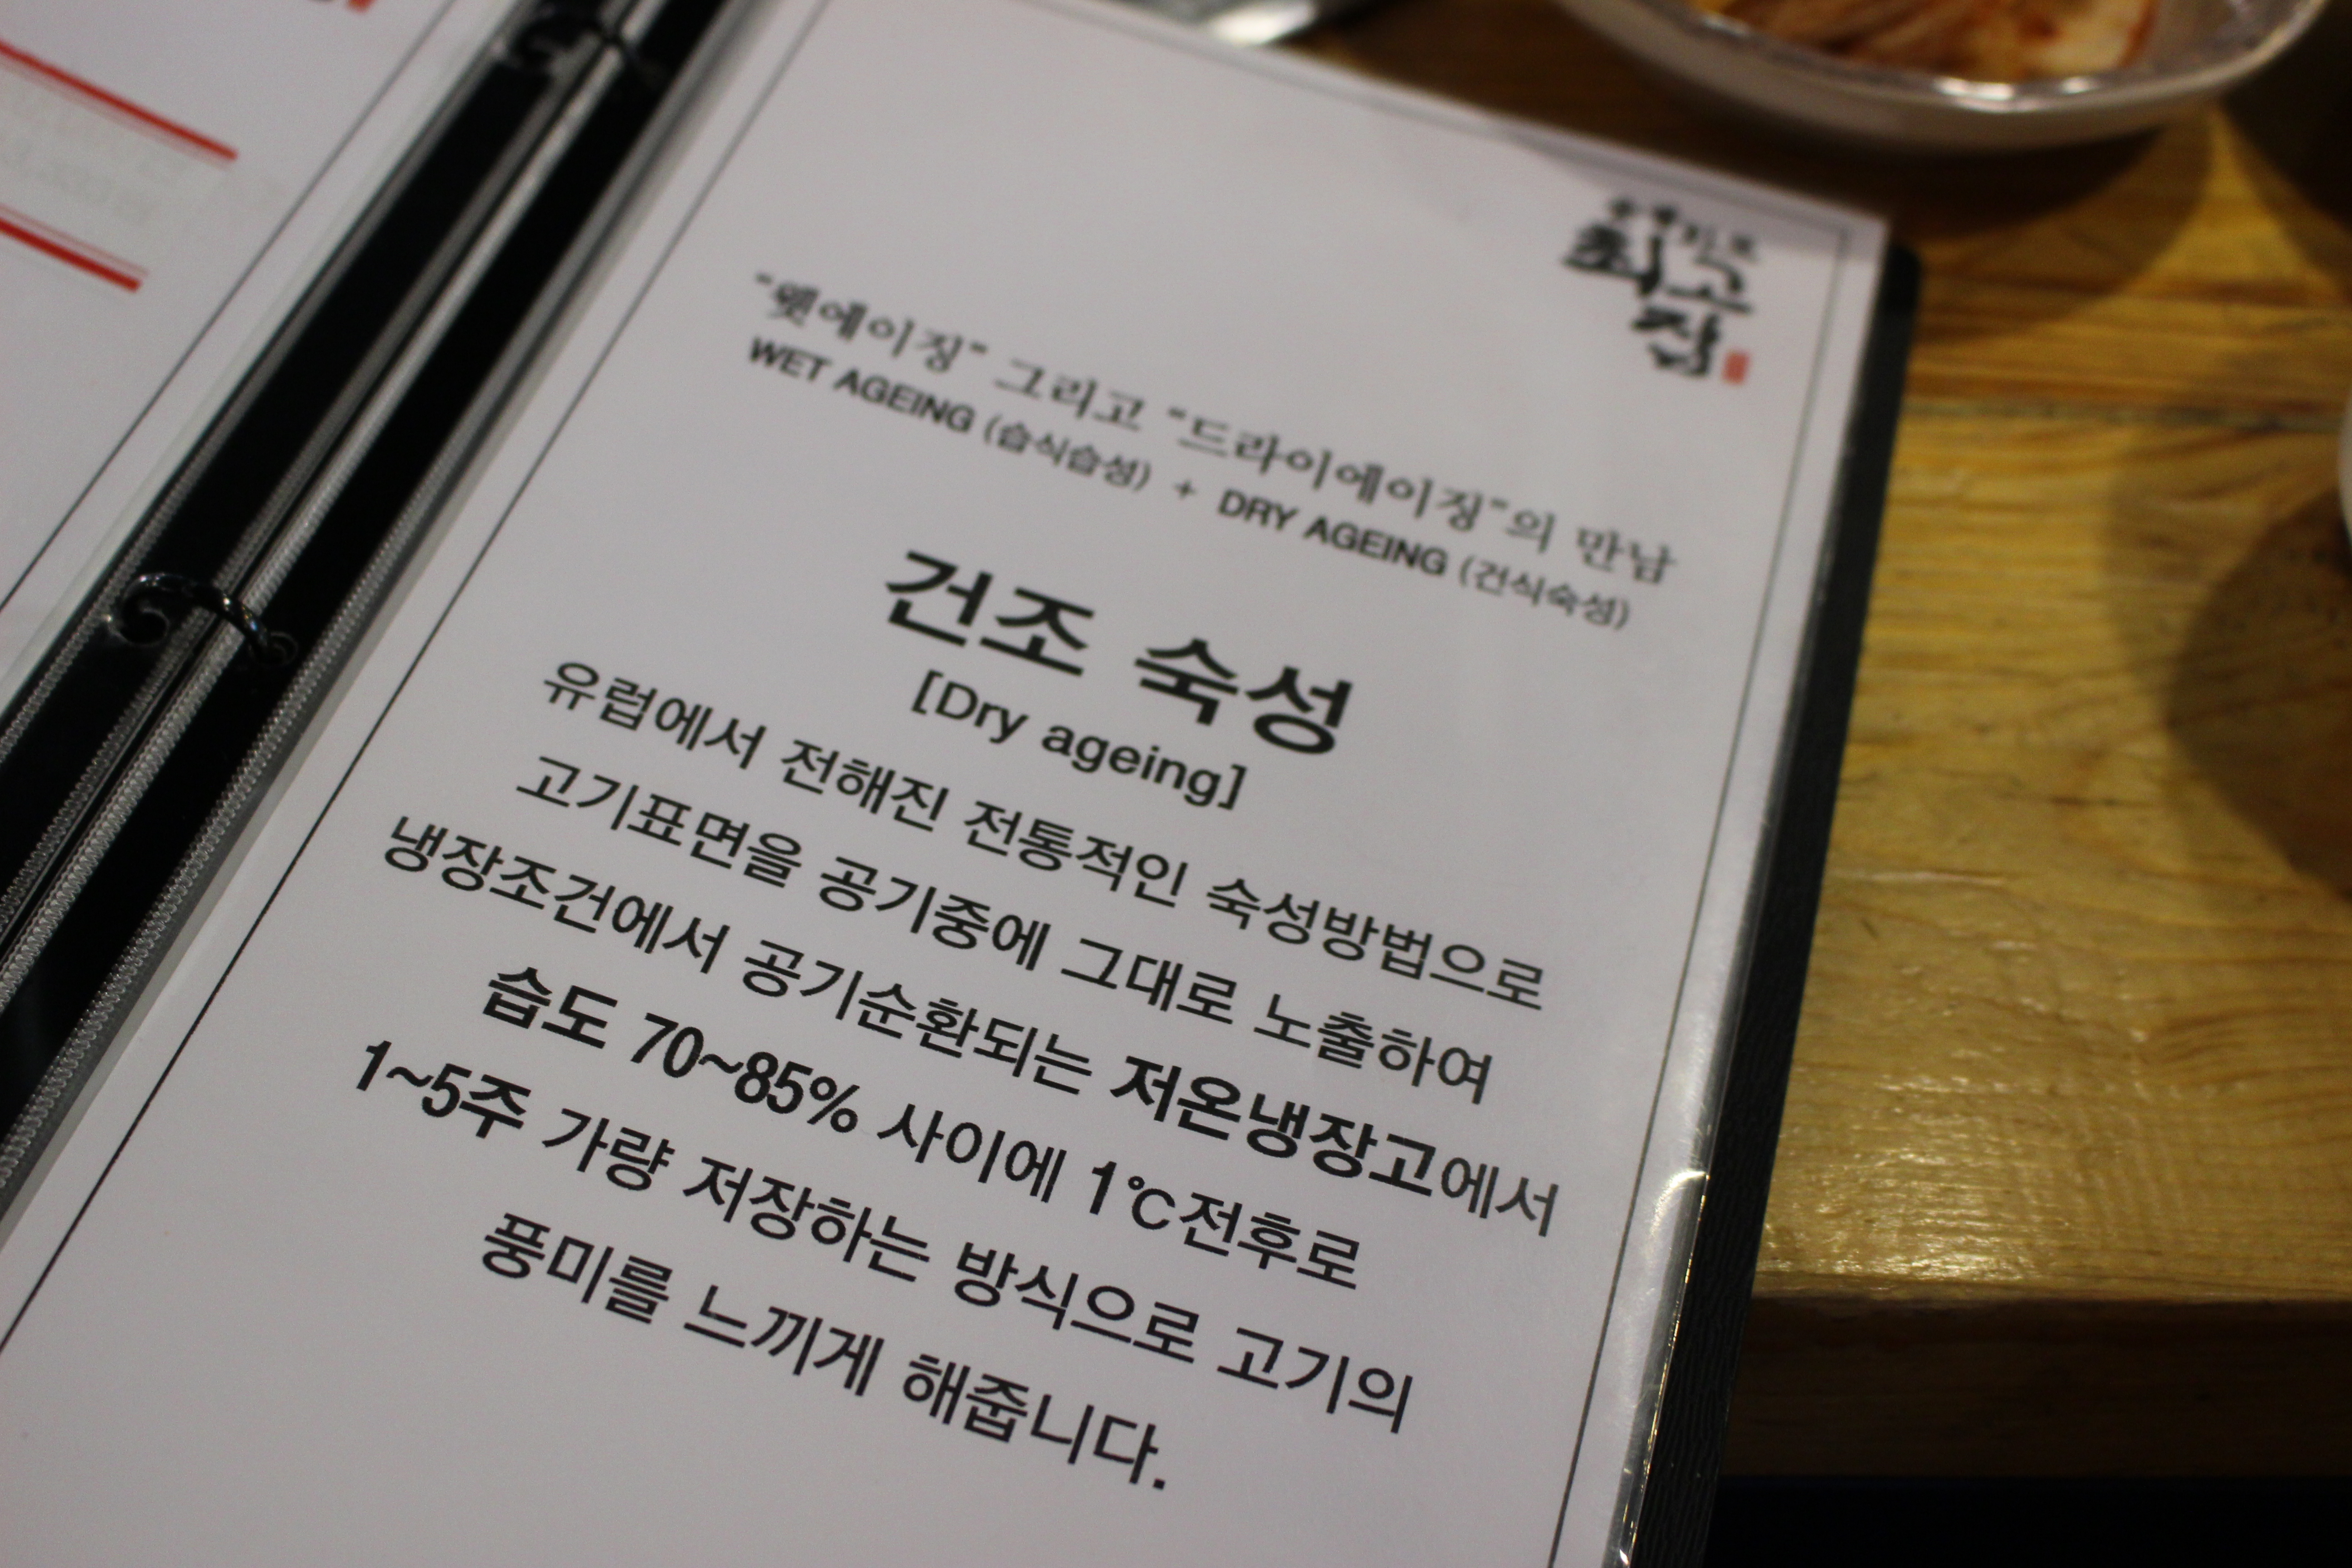 최고집
"웻에이징" 그리고 "드라이에이징"의 만남
WET AGEING (습식습성) + DRY AGEING (건식숙성)
건조 숙성
[Dry ageing]
유럽에서 전해진 전통적인 숙성방법으로
고기표면을 공기중에 그대로 노출하여
냉장조건에서 공기순환되는 저온냉장고에서
습도 70~85% 사이에 1℃전후로
1~5주 가량 저장하는 방식으로 고기의
풍미를 느끼게 해줍니다.